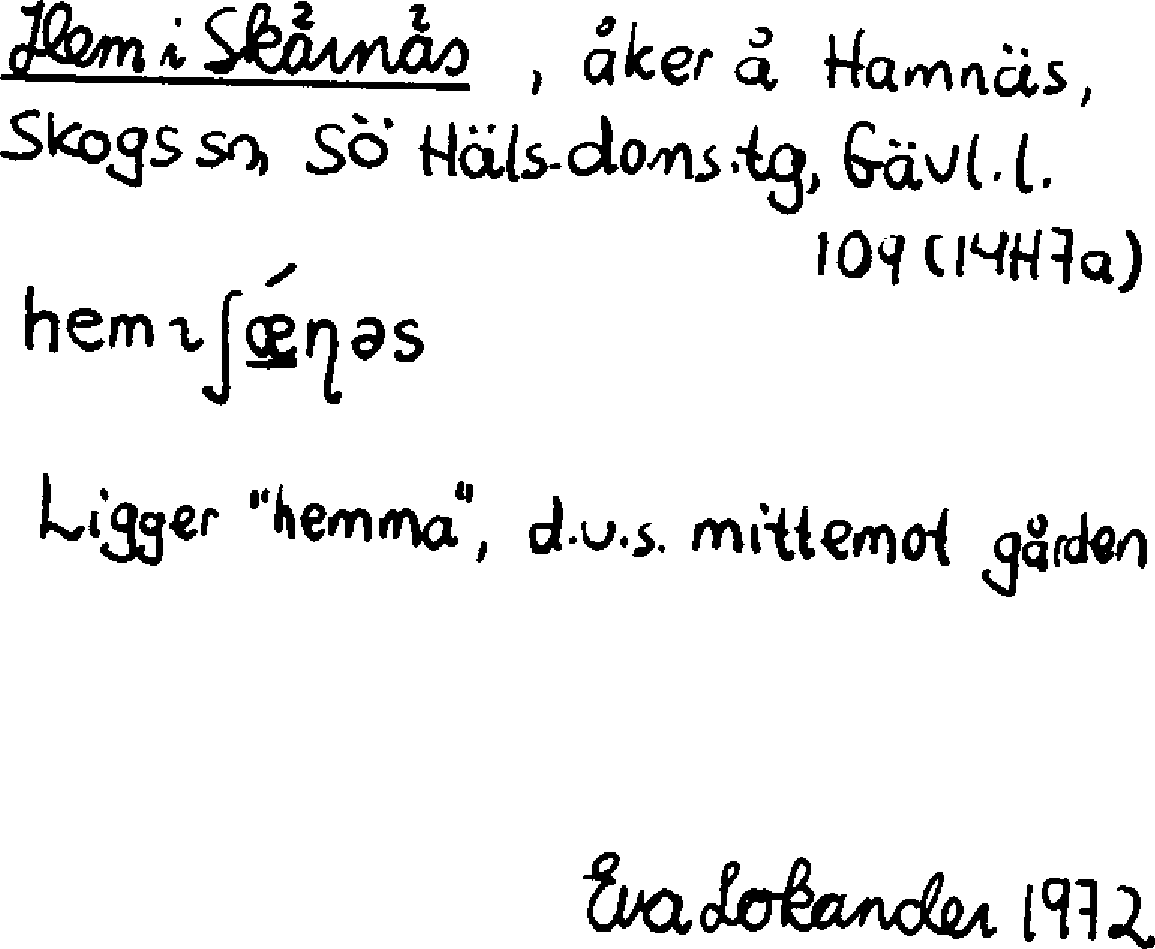 Hem i Skärnäs, åker å Hamnäs,
Skogs sn, Sö Häls. doms.tg, Gävl.l.
109 (14H7a)
hem ɿ ʃǽ̱ηəs
Ligger "hemma", d.v.s. mittemot gården
Eva Lokander 1972